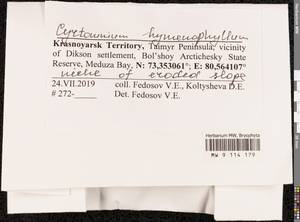 Cyrtomnium hymenophyllum
Krasnoyarsk Territory, Taimyr Peninsula, vicinity
of Dikson settlement, Bol'shoy Arctichesky State
Reserve, Meduza Bay, N: 73,353061°; E: 80,564107°
niche of eroded slope
24.VII.2019 coll. Fedosov V.E., Koltysheva D.E.
# 272-_____ Det. Fedosov V.E.
Herbarium MW, Bryophyta
MW 9 114 179